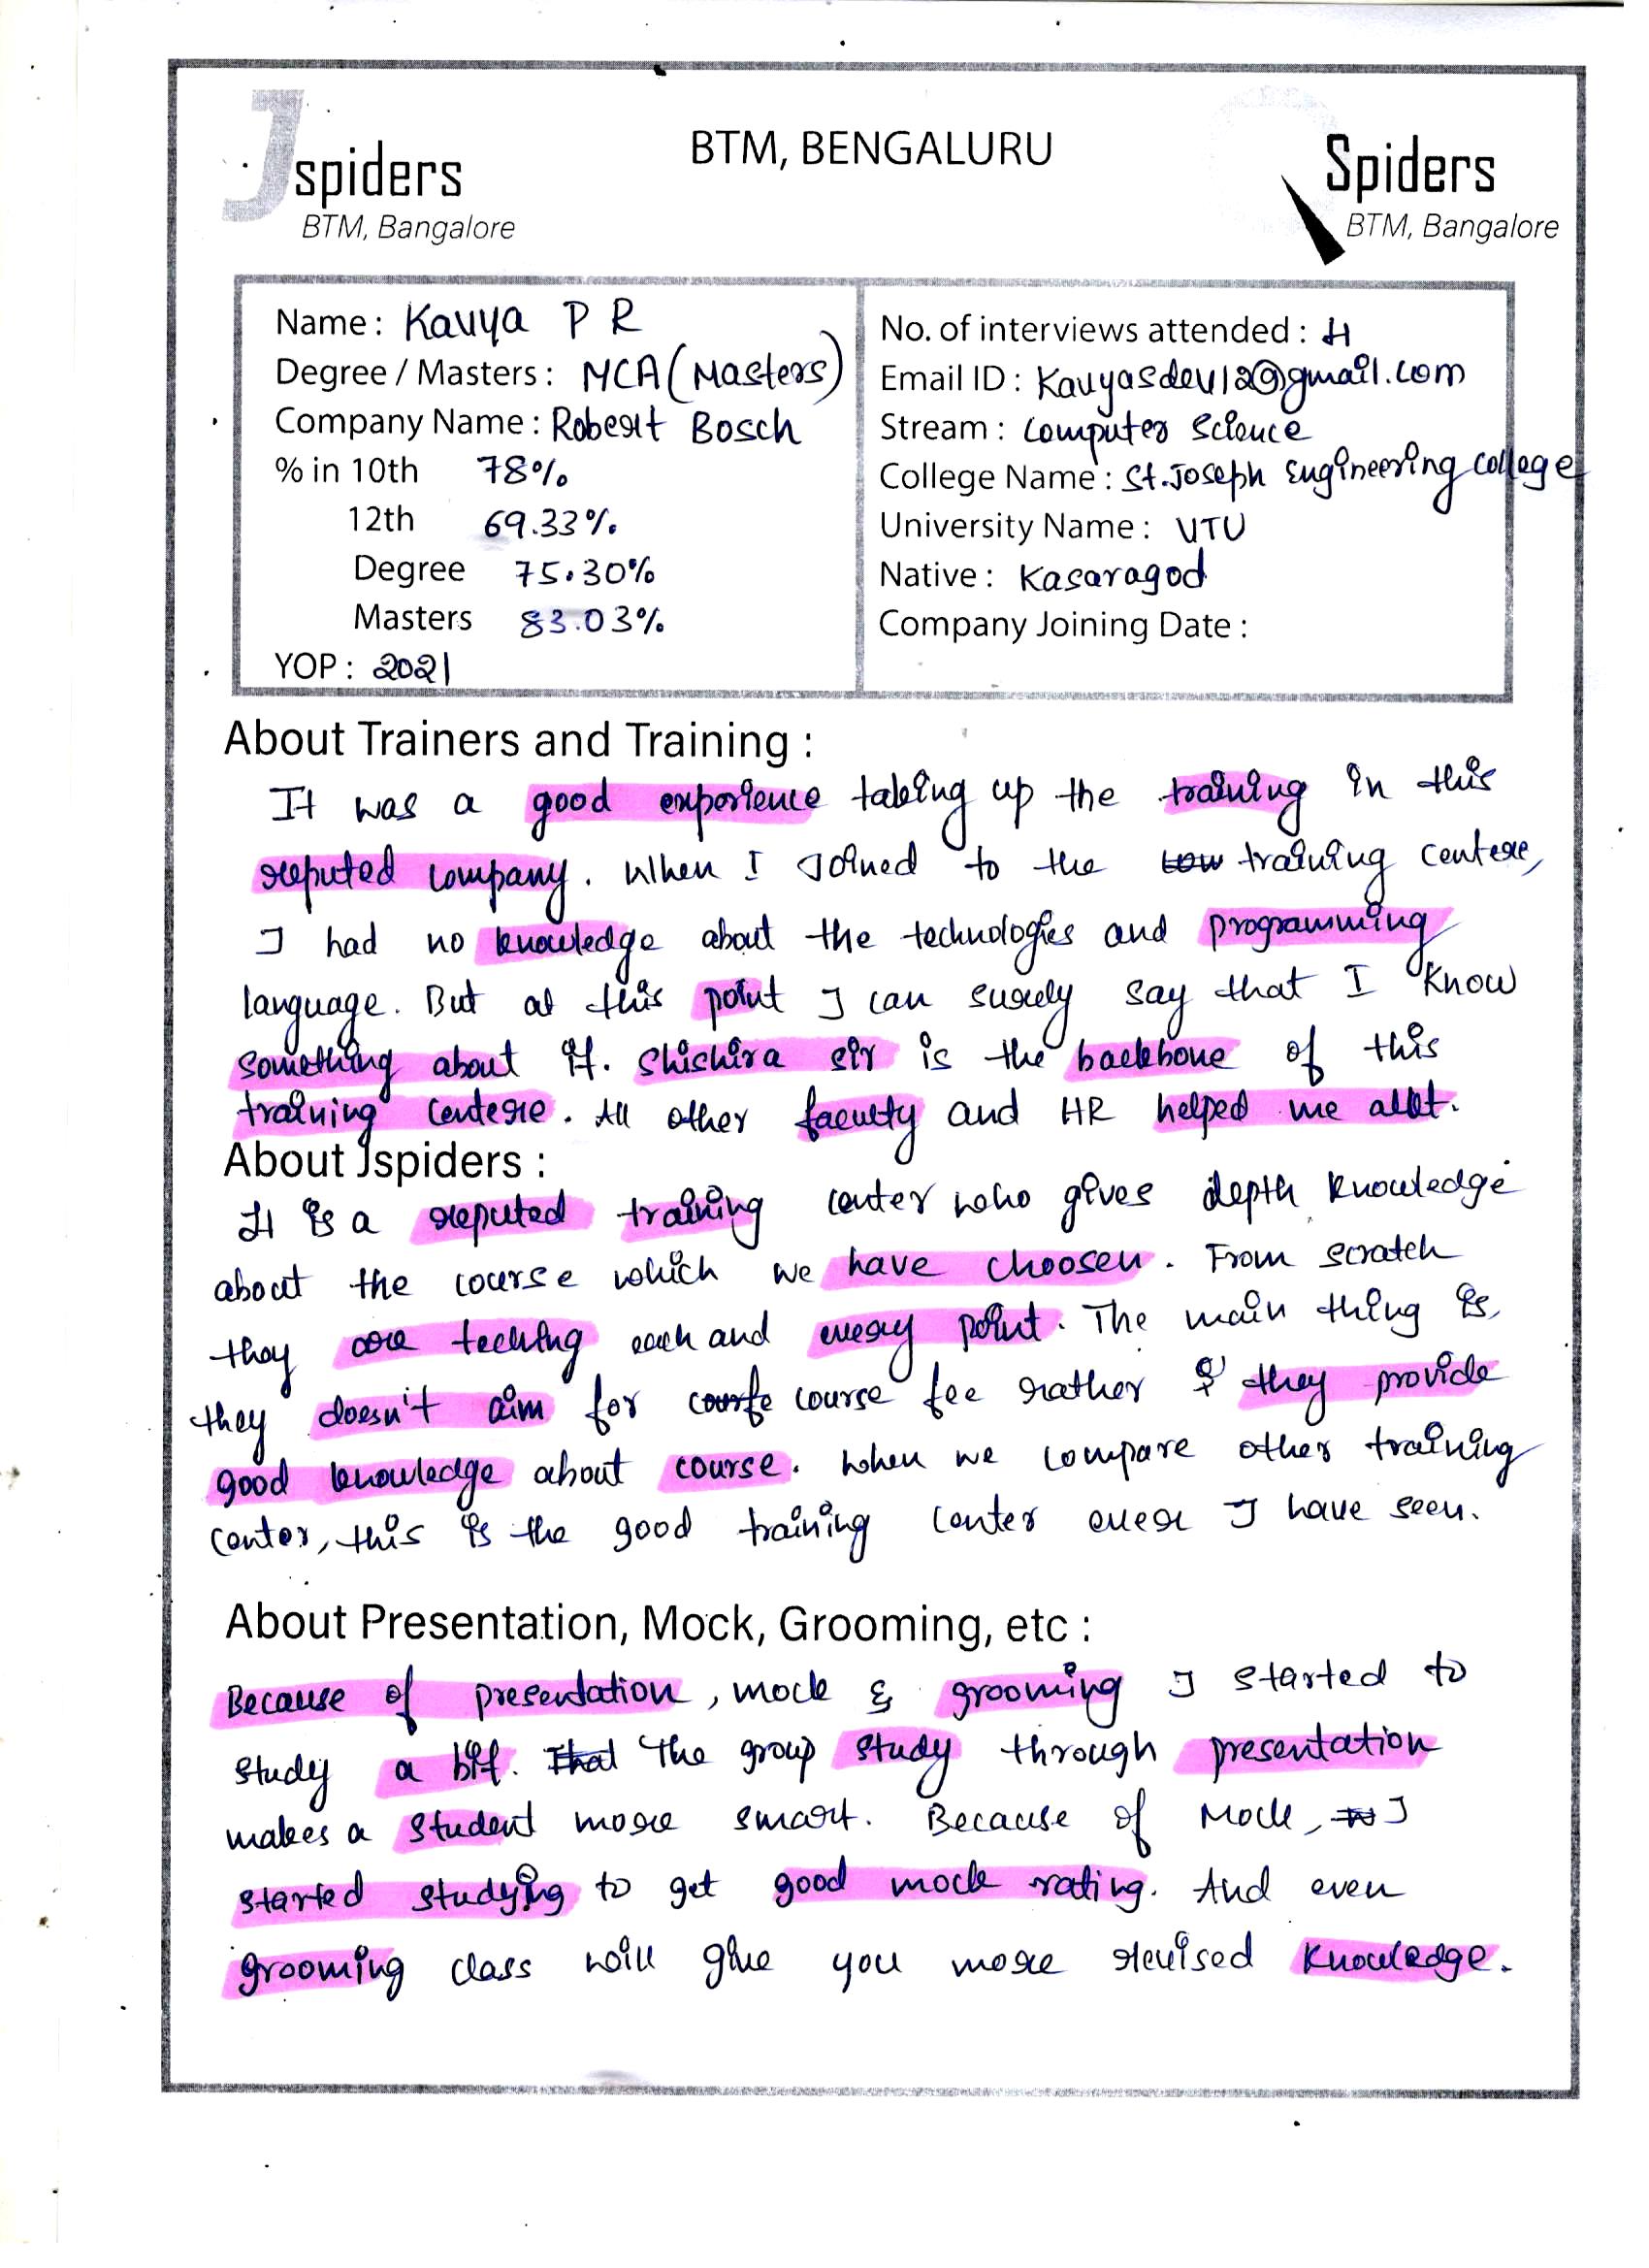 BTM, BENGALURU
Jspiders
BTM, Bangalore
Spiders
BTM, Bangalore
Name : Kavya P R
Degree / Masters : MCA (Masters)
Company Name : Robert Bosch
% in 10th 78%
12th 69.33%
Degree 75.30%
Masters 83.03%
YOP : 2021
No. of interviews attended : 4
Email ID : Kavyasdev12@gmail.com
Stream : Computer Science
College Name : St. Joseph Engineering college
University Name : VTU
Native : Kasaragod
Company Joining Date :
About Trainers and Training :
It was a good experience taking up the training in this
reputed company. When I Joined to the training centere,
I had no knowledge about the technologies and programming
language. But at this point I can surely say that I know
something about it. Shishira sir is the backbone of this
training centere. All other faculty and HR helped me allt.
About Jspiders :
It is a reputed training center who gives depth knowledge
about the course which we have choosen. From scratch
they are teching each and every point. The main thing is,
they doesn't aim for course fee rather they provide
good knowledge about course. When we compare other training
center, this is the good training center ever I have seen.
About Presentation, Mock, Grooming, etc :
Because of presentation, mock & grooming I started to
study a bit. The group study through presentation
makes a student more smart. Because of Mock, I
started studying to get good mock rating. And even
grooming class will give you more revised knowledge.